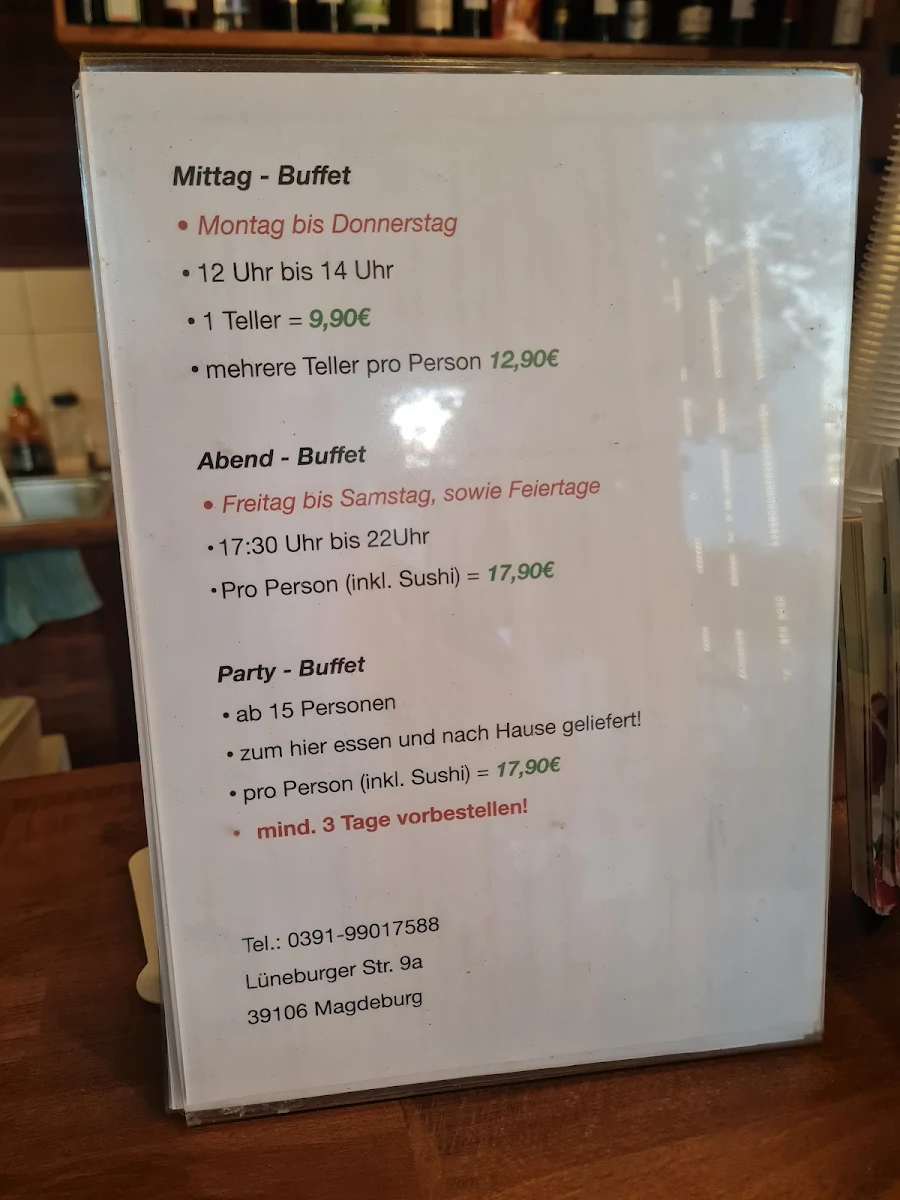 Mittag - Buffet
• Montag bis Donnerstag
• 12 Uhr bis 14 Uhr
• 1 Teller = 9,90€
• mehrere Teller pro Person 12,90€
Abend - Buffet
• Freitag bis Samstag, sowie Feiertage
• 17:30 Uhr bis 22Uhr
• Pro Person (inkl. Sushi) = 17,90€
Party - Buffet
• ab 15 Personen
• zum hier essen und nach Hause geliefert!
• pro Person (inkl. Sushi) = 17,90€
• mind. 3 Tage vorbestellen!
Tel.: 0391-99017588
Lüneburger Str. 9a
39106 Magdeburg